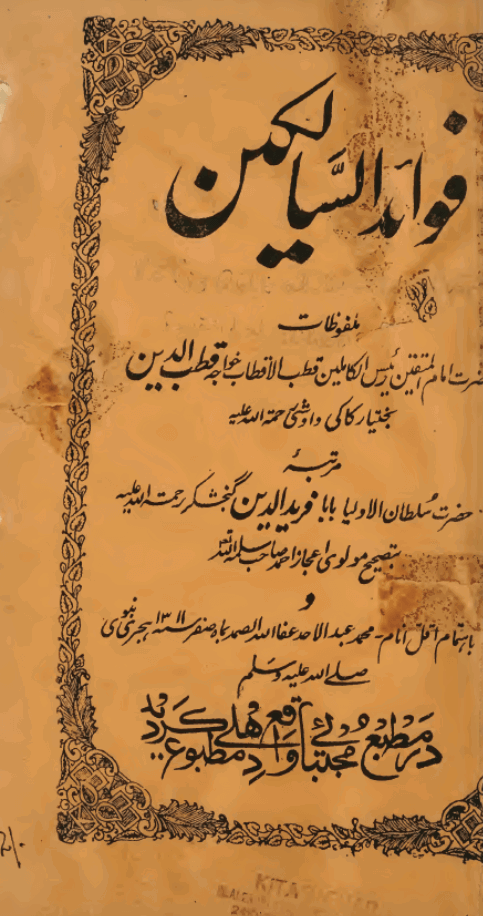 فوائد السالکین
ملفوظات
حضرت امام المتقین رئیس الکاملین قطب الاقطاب خواجہ قطب الدین
بختیار کاکی داوشی رحمۃ اللہ علیہ
مرتبۂ
حضرت سُلطان الاولیا بابا فرید الدین گنجشکر رحمت اللہ علیہ
بتصحیح مولوی اعجاز احمد صاحب سلمہ اللہ
و
باہتمام اقل انام - محمد عبد الاحد عفا اللہ الصمد بماہ صفر سنہ ۱۳۱۱ ہجری نبوی
صلے اللہ علیہ وسلم
در مطبع مجتبائی واقع دہلی مطبوع گردید